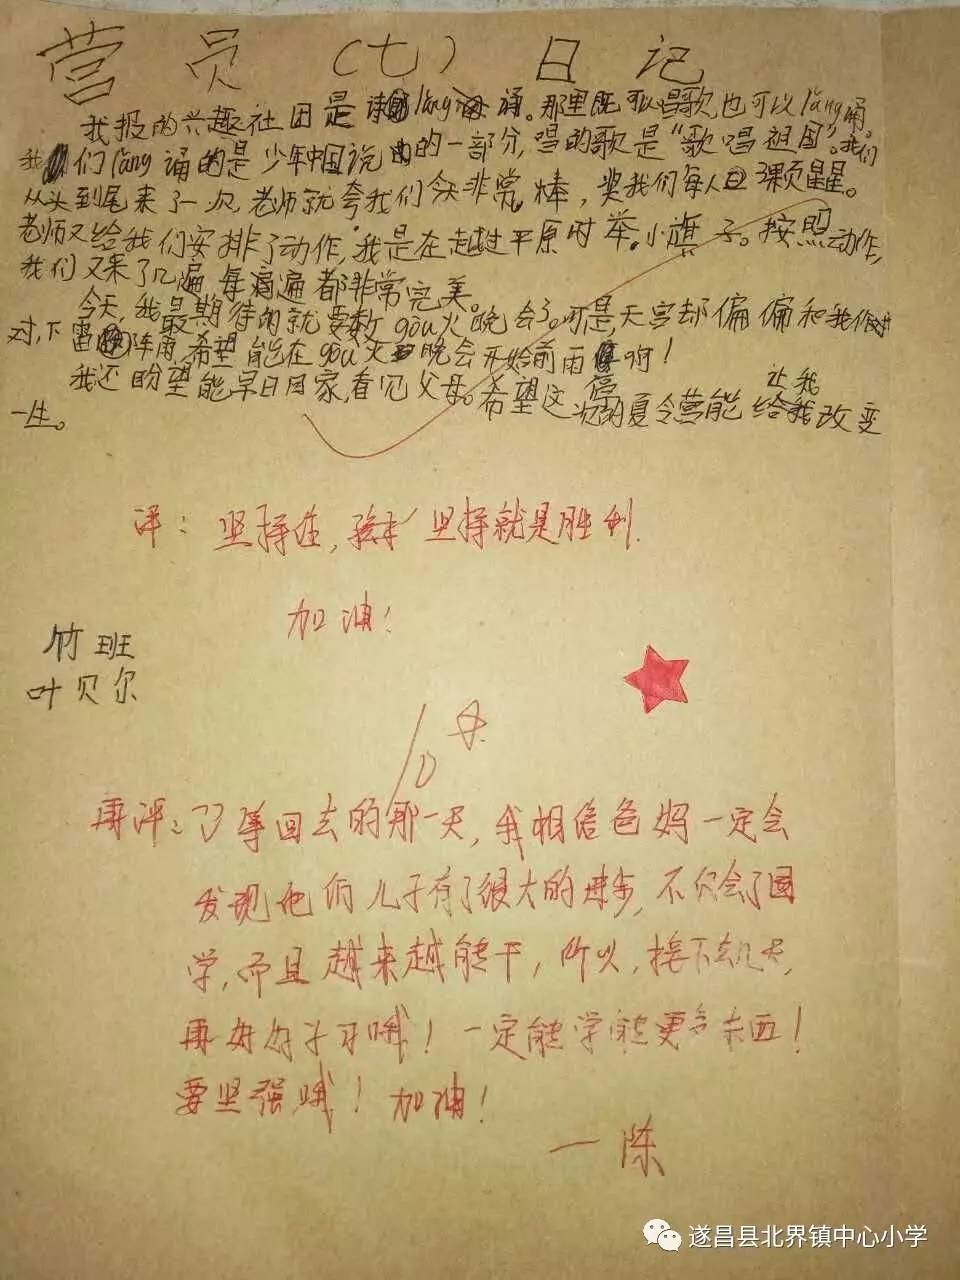 营员(七)日记
我报的兴趣社团是lǎng诵。那里既可以唱歌也可以lǎng诵。
我们lǎng诵的是少年中国说的一部分,唱的歌是“歌唱祖国”。我们
从头到尾来了一次,老师就夸我们今天非常棒,奖我们每人3颗星星。
老师又给我们安排了动作,我是在越过平原时举小旗子。按照动作,
我们又来了几遍,每遍都非常完美。
今天,我最期待的就要数gōu火晚会了。可是,天宫却偏偏和我们作
对,下雷阵雨,希望能在gōu火晚会开始前雨停啊!
我还盼望能早日回家,看见父母。希望这次的夏令营能给我改变
让我
一生。
评:坚持住,孩子!坚持就是胜利.
加油!
竹班
叶贝尔
10
再评:了等回去的那一天,我相信爸妈一定会
发现他们儿子有了很大的进步,不仅会了国
学,而且越来越能干,所以,接下去几天,
再好好学习哦!一定能学能更多东西!
要坚强哦!加油!
一陈
遂昌县北界镇中心小学